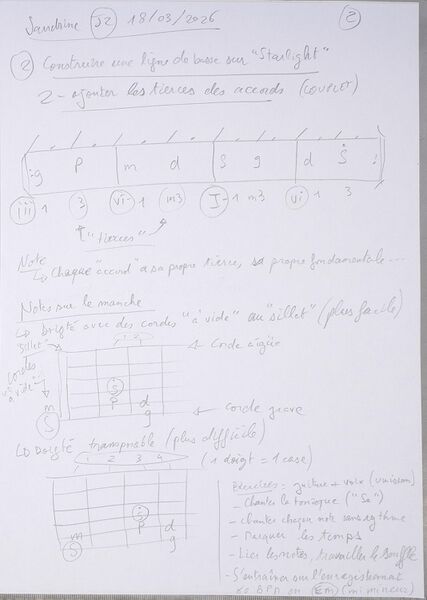 Sandrine S2 18/03/2026 2
2 Construire une ligne de basse sur "Starlight"
2 - ajouter les tierces des accords (COUPLET)
g P m d S g d S
iii 1 3 vi- 1 m3 I- 1 m3 vi 1 3
"tierces"
Note
↳ Chaque "accord" a sa propre tierces, sa propre fondamentale...
Notes sur le manche
↳ Doigté avec des cordes "à vide" au "sillet" (plus facile)
sillet 1 2 ← Corde aigüe
cordes "à vide"
S
P d
m
S g ← corde grave
↳ Doigté transposable (plus difficile)
1 2 3 4 (1 doigt = 1 case)
S
P d
m g
S
Exercices = guitare + voix (unisson)
- Chanter la tonique ("Se")
- chanter chaque note sans rythme
- Marquer les temps
- Lier les notes, travailler le souffle
- S'entraîner sur l'enregistrement
BPM en Em (mi mineur)